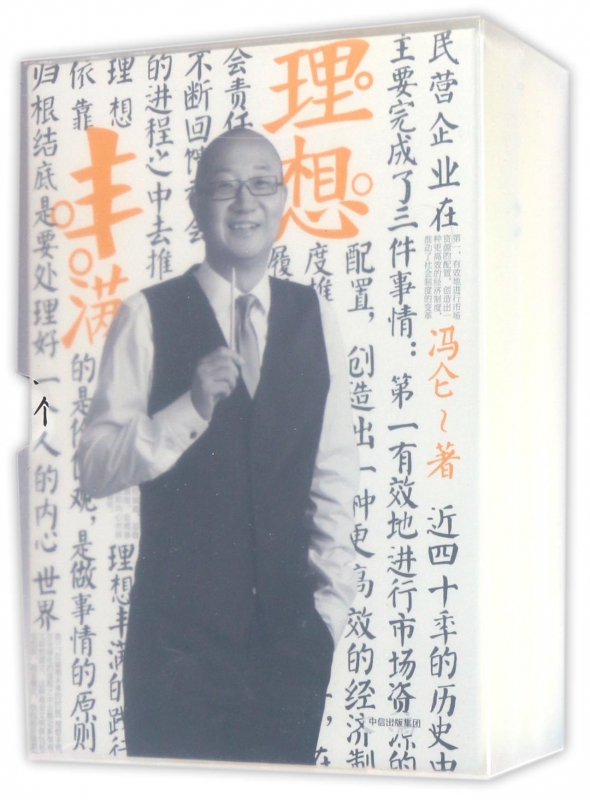 民营企业在
近四十年的历史中
主要完成了三件事情：第一有效地进行市场资源的
第一，有效地进行市场
资源的配置，创造出一
种更高效的经济制度，
推动了社会制度的变革
冯仑～著
理想
丰满
配置，创造出一种更高效的经济制
度推
，在
履
会责任
不断回
的进程之中去推
理想
理想丰满的践行
依靠
的是价值观，是做事情的原则
归根结底是要处理好一个人的内心世界
中信出版集团